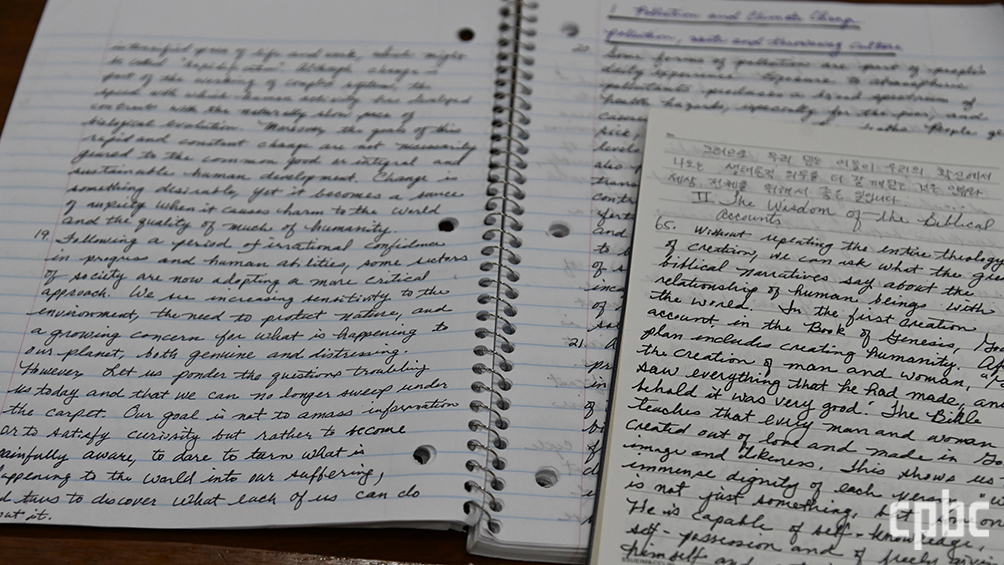 intensified pace of life and work, which might
be called "rapidification". Although change is
part of the working of complex systems, the
speed with which human activity has developed
contrasts with the naturally slow pace of
biological evolution. Moreover, the goals of this
rapid and constant change are not necessarily
geared to the common good or integral and
sustainable human development. Change is
something desirable, yet it becomes a source
of anxiety when it causes charm to the world
and the quality of much of humanity.
19. Following a period of irrational confidence
in progress and human abilities, some sectors
of society are now adopting a more critical
approach. We see increasing sensitivity to the
environment, the need to protect nature, and
a growing concern for what is happening to
our planet, both genuine and distressing.
However let us ponder the questions troubling
us today and that we can no longer sweep under
the carpet. Our goal is not to amass information
or to satisfy curiosity but rather to become
painfully aware, to dare to turn what is
happening to the world into our suffering,
to discover what each of us can do
it.
1 Pollution and Climate Change
Pollution, waste and throwaway culture
20. Some forms of pollution are part of people's
daily experience. Exposure to atmospheric
pollutants produces a broad spectrum of
health hazards, especially for the poor, and
People
21.
그러므로 우리 믿는 이들이 우리의 확신에서
나오는 생태론적 의무를 더 잘 깨닫는 것은 인류와
세상 전체를 위해서 좋은 일입니다
II The Wisdom of the Biblical
accounts
65. Without repeating the entire theology
of creation, we can ask what the
biblical narratives say about the
relationship of human beings with
the world. In the first creation
account in the Book of Genesis,
plan includes creating humanity.
the creation of man and woman,
saw everything that he had made, and
behold it was very good." The Bible
teaches that every man and woman
created out of love and made in
image and likeness. This shows us
immense dignity of each person
is not just something, but
He is capable of self-knowledge,
self-possession and of freely
himself and
cpbc